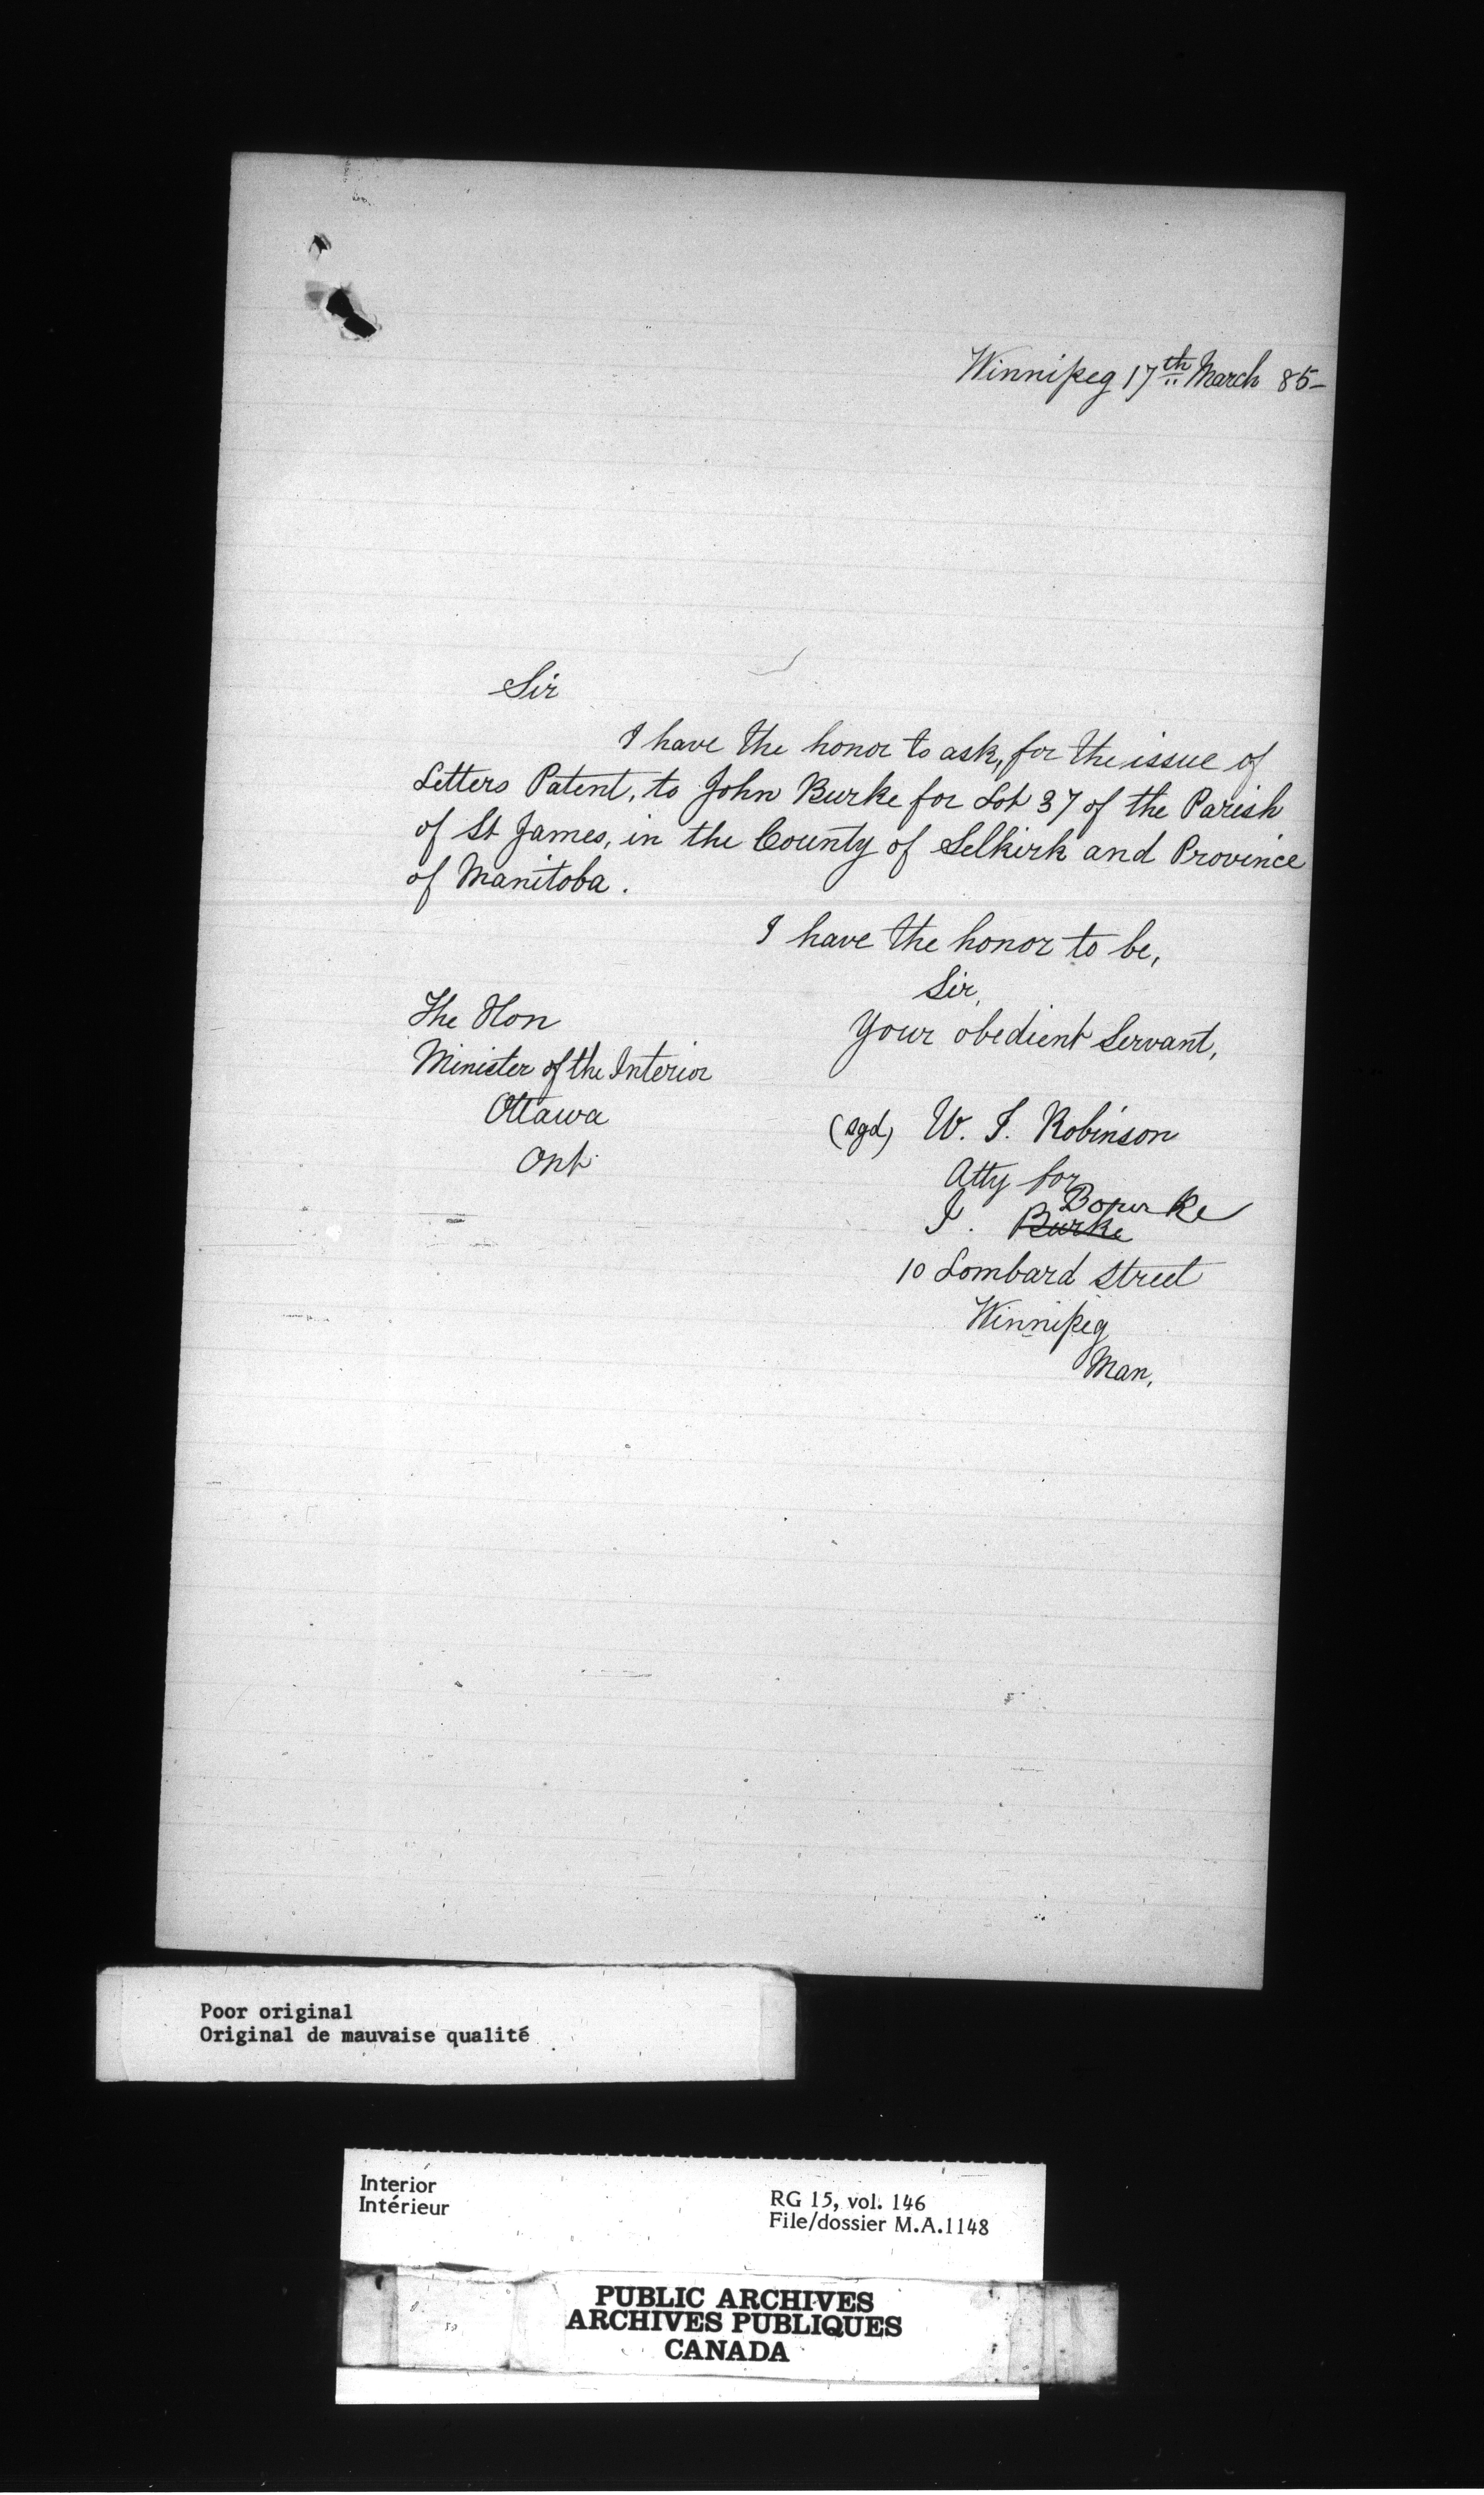 Winnipeg 17th March 85-
Sir
I have the honor to ask, for the issue of
Letters Patent, to John Burke for Lot 37 of the Parish
of St James, in the County of Selkirk and Province
of Manitoba.
I have the honor to be,
Sir,
Your obedient Servant,
The Hon
Minister of the Interior
Ottawa
Ont.
(sgd) W. J. Robinson
Atty for
Bourke
J. Burke
10 Lombard Street
Winnipeg
Man.
Poor original
Original de mauvaise qualité
Interior
Intérieur
RG 15, vol. 146
File/dossier M.A.1148
PUBLIC ARCHIVES
ARCHIVES PUBLIQUES
CANADA